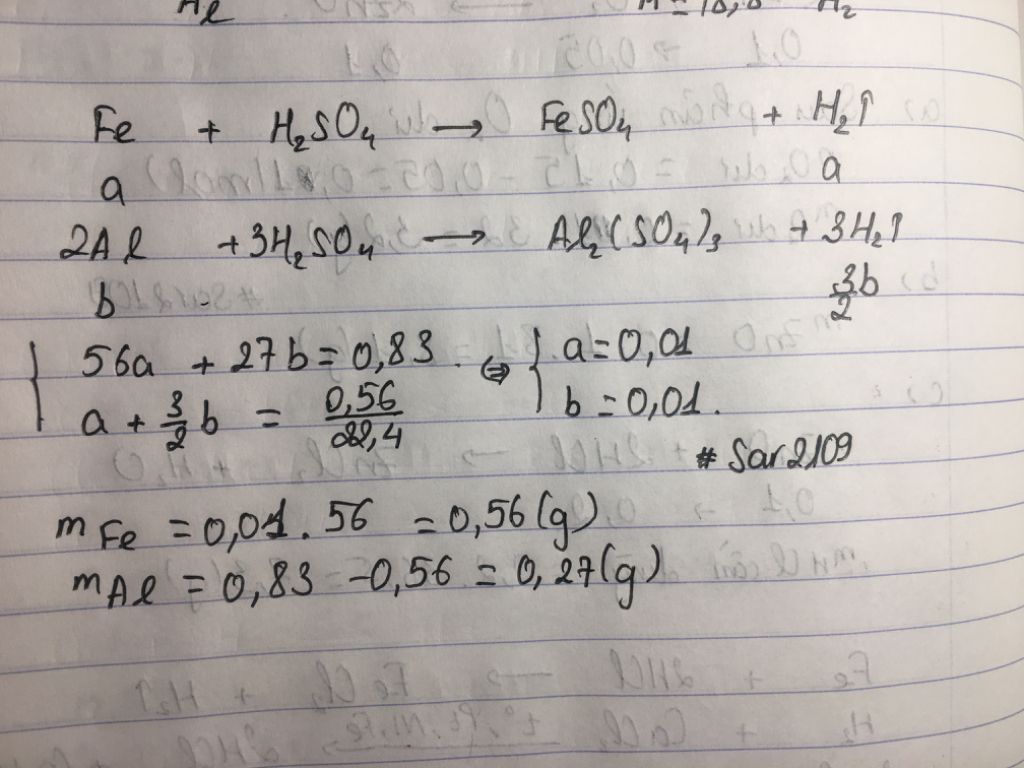 Fe + H₂SO₄ → FeSO₄ + H₂↑
a a
2Al + 3H₂SO₄ → Al₂(SO₄)₃ + 3H₂↑
b 3/2 b
{ 56a + 27b = 0,83 ⇔ { a = 0,01
a + 3/2 b = 0,56/22,4 b = 0,01.
# Sar2109
m Fe = 0,01 . 56 = 0,56 (g)
m Al = 0,83 - 0,56 = 0,27 (g)